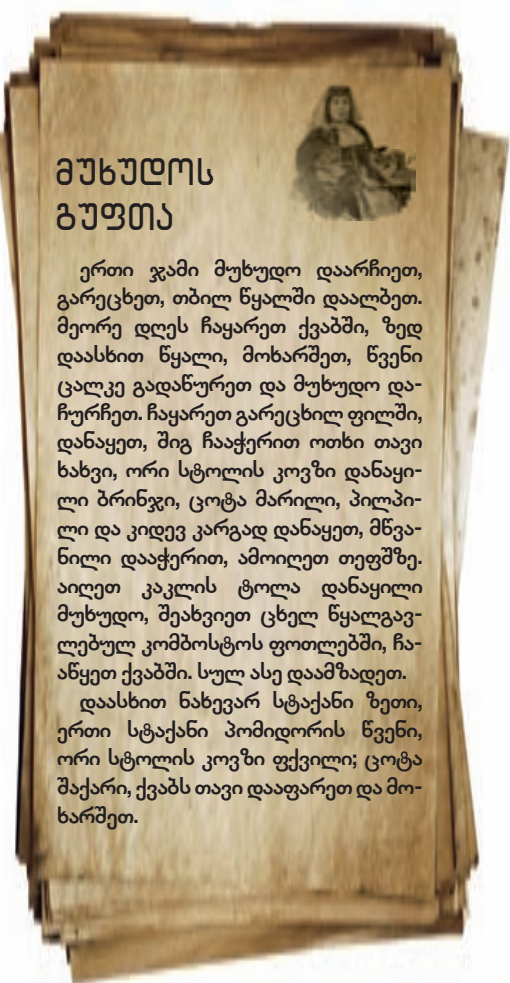 მუხუდოს
გუფთა
ერთი ჯამი მუხუდო დაარჩიეთ,
გარეცხეთ, თბილ წყალში დაალბეთ.
მეორე დღეს ჩაყარეთ ქვაბში, ზედ
დაასხით წყალი, მოხარშეთ, წვენი
ცალკე გადაწურეთ და მუხუდო და-
ჩურჩეთ. ჩაყარეთ გარეცხილ ფილში,
დანაყეთ, შიგ ჩააჭერით ოთხი თავი
ხახვი, ორი სტოლის კოვზი დანაყი-
ლი ბრინჯი, ცოტა მარილი, პილპი-
ლი და კიდევ კარგად დანაყეთ, მწვა-
ნილი დააჭერით, ამოიღეთ თეფშზე.
აიღეთ კაკლის ტოლა დანაყილი
მუხუდო, შეახვიეთ ცხელ წყალგავ-
ლებულ კომბოსტოს ფოთლებში, ჩა-
აწყეთ ქვაბში. სულ ასე დაამზადეთ.
დაასხით ნახევარ სტაქანი ზეთი,
ერთი სტაქანი პომიდორის წვენი,
ორი სტოლის კოვზი ფქვილი; ცოტა
შაქარი, ქვაბს თავი დააფარეთ და მო-
ხარშეთ.